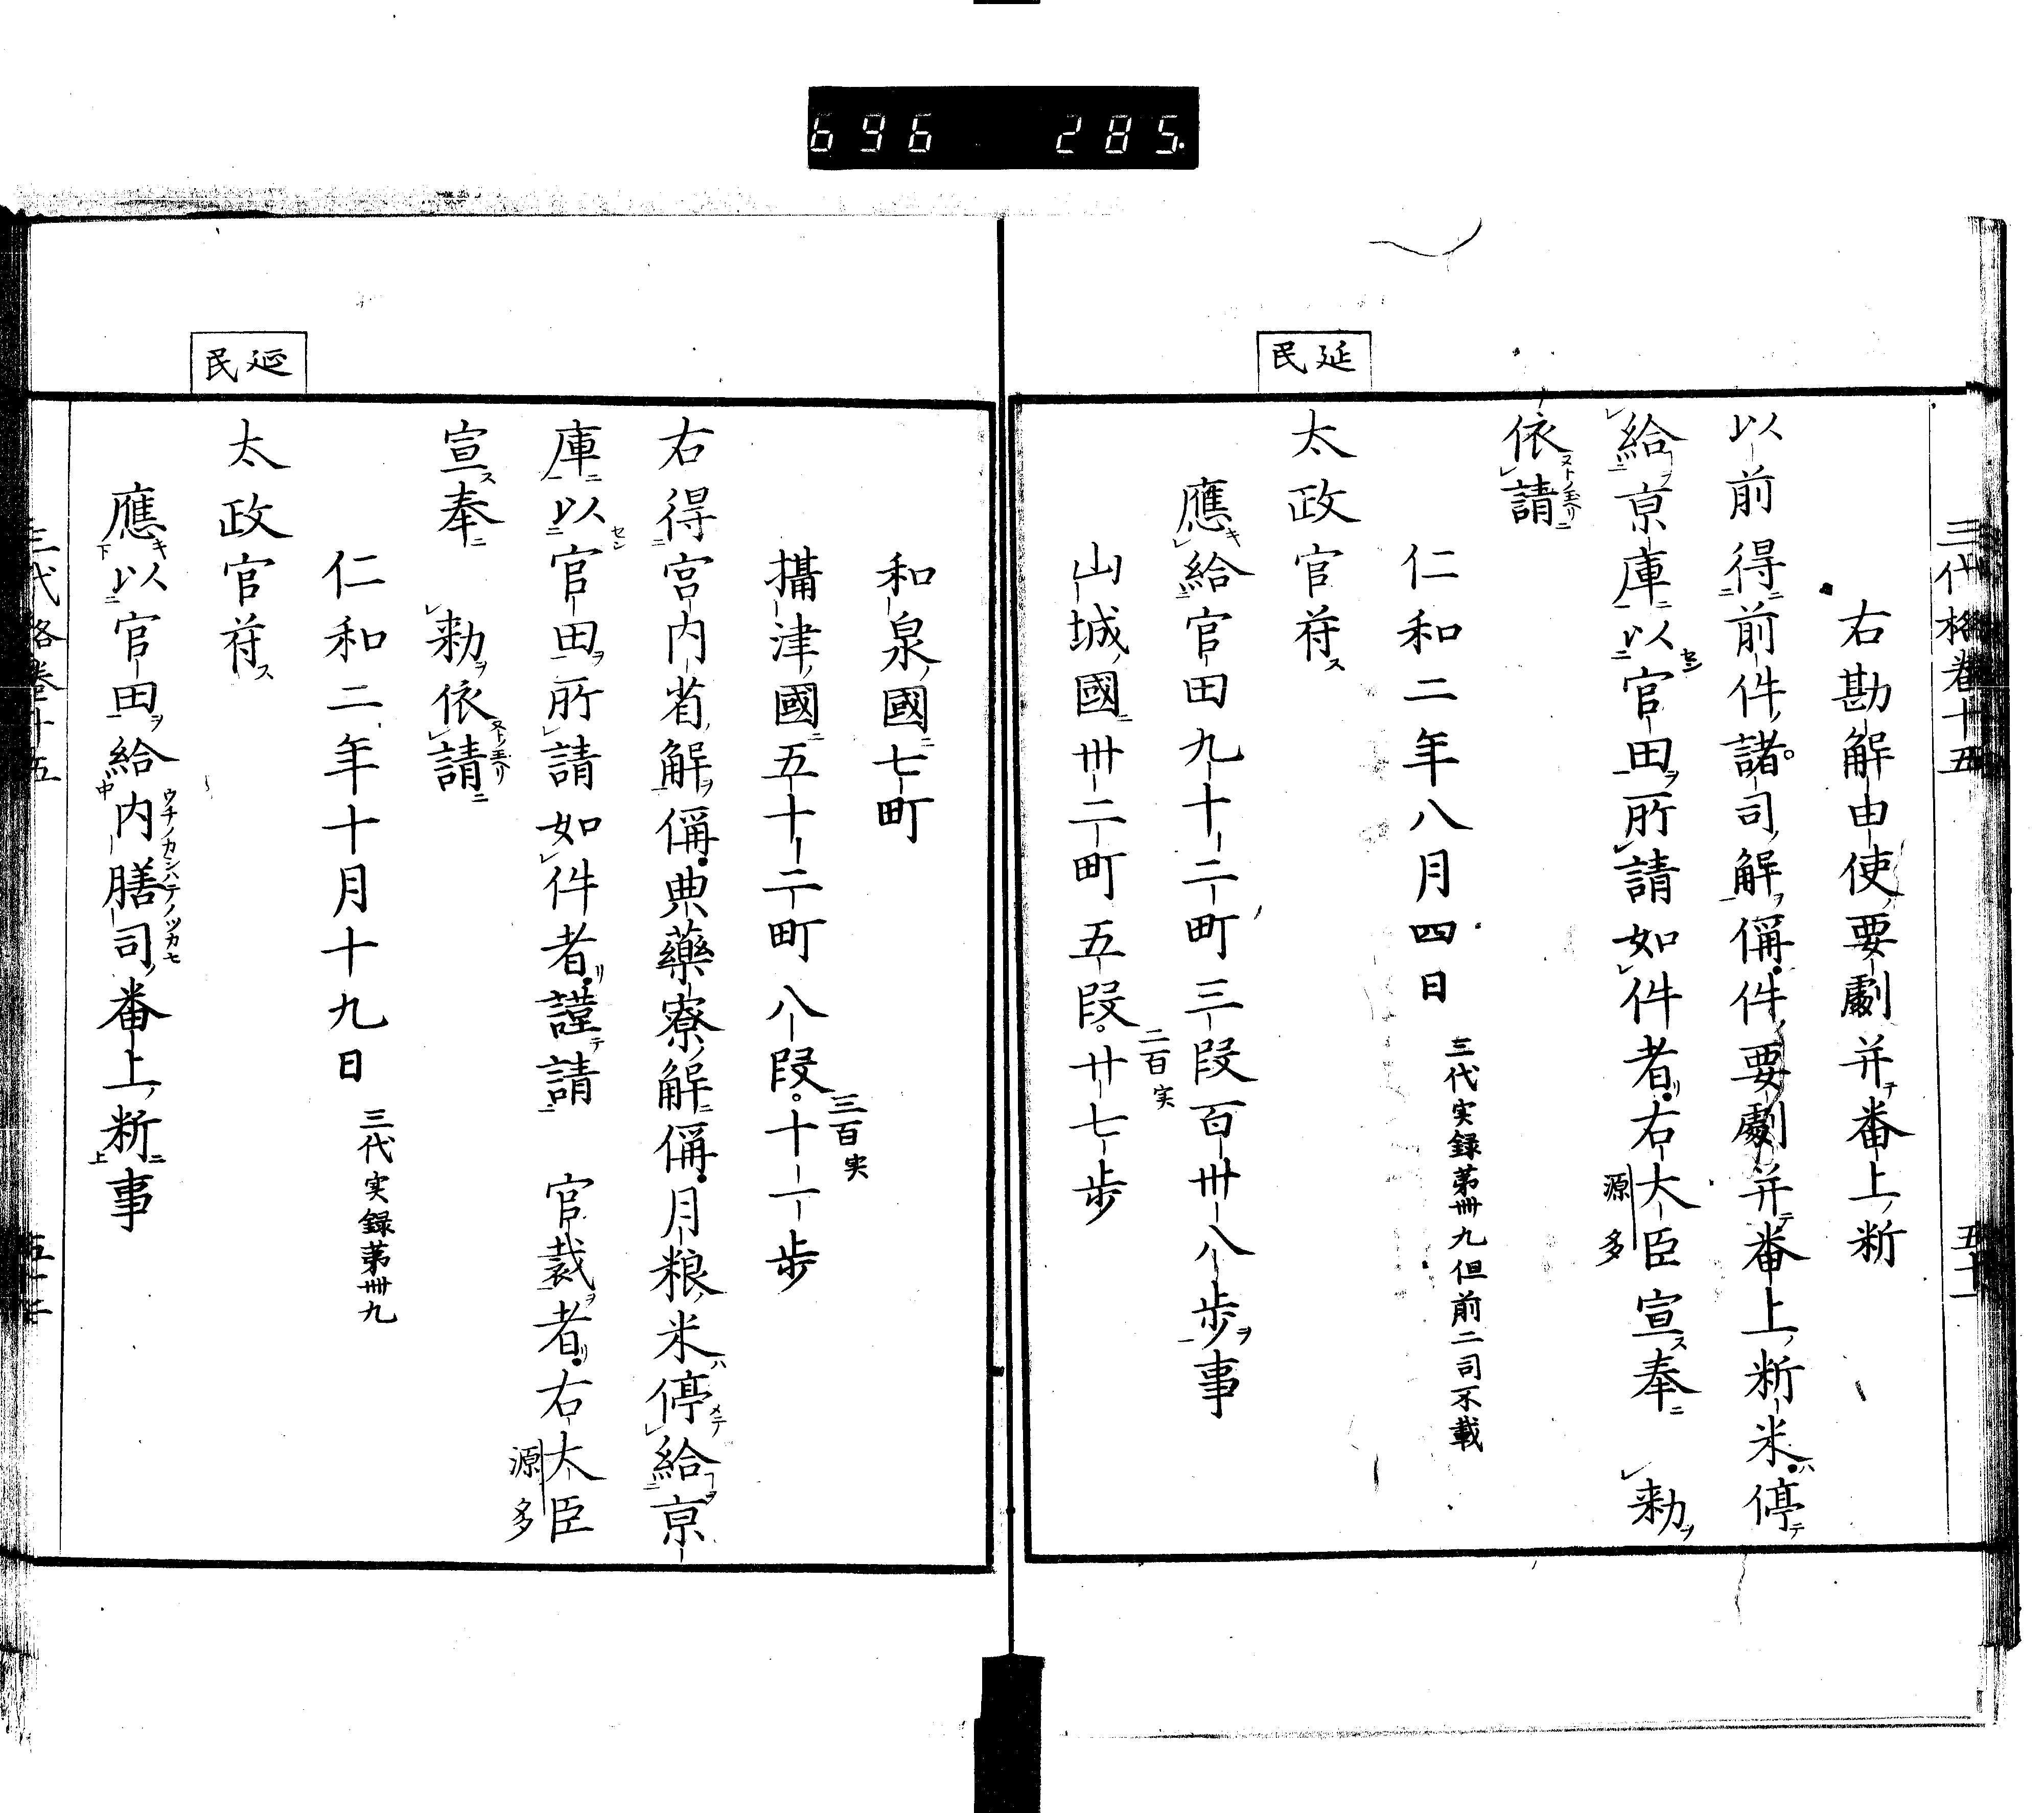 696 285
三代格卷十五 五十一
延民
右勘解由使要劇并番上新
以前得前件諸司解偁件要劇并番上新米停
給京庫以官田所請如件者右大臣宣奉 勅
源多
依請
仁和二年八月四日 三代実録苐卌九但前二司不載
太政官符
應給官田九十二町三段百卌八歩事
山城國卌二町五段廿七歩
二百実
延民
和泉國七町
攝津國五十二町八段十一歩
三百実
右得宮内省解偁典藥寮解偁月粮米停給京
庫以官田所請如件者謹請 官裁者右大臣
源多
宣奉 勅依請
仁和二年十月十九日 三代実録苐卌九
太政官符
應以官田給内膳司番上新事
ウチノカシハテノツカサ
三代格卷十五